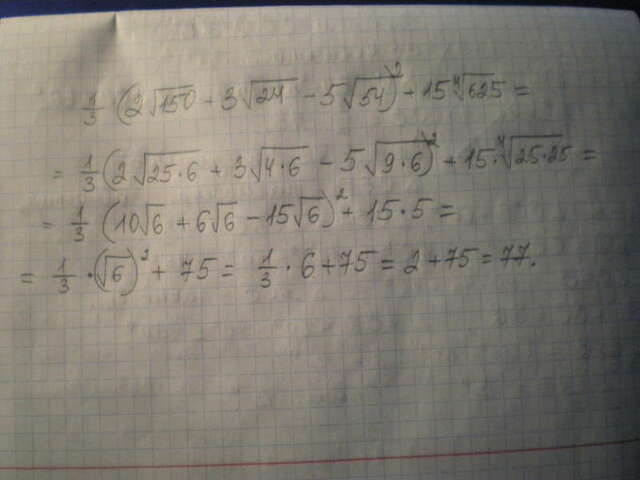 1/3 (2√150 + 3√24 - 5√54)² + 15 ⁴√625 =
= 1/3 (2√25·6 + 3√4·6 - 5√9·6)² + 15·⁴√25·25 =
= 1/3 (10√6 + 6√6 - 15√6)² + 15·5 =
= 1/3 · (√6)² + 75 = 1/3 · 6 + 75 = 2 + 75 = 77.